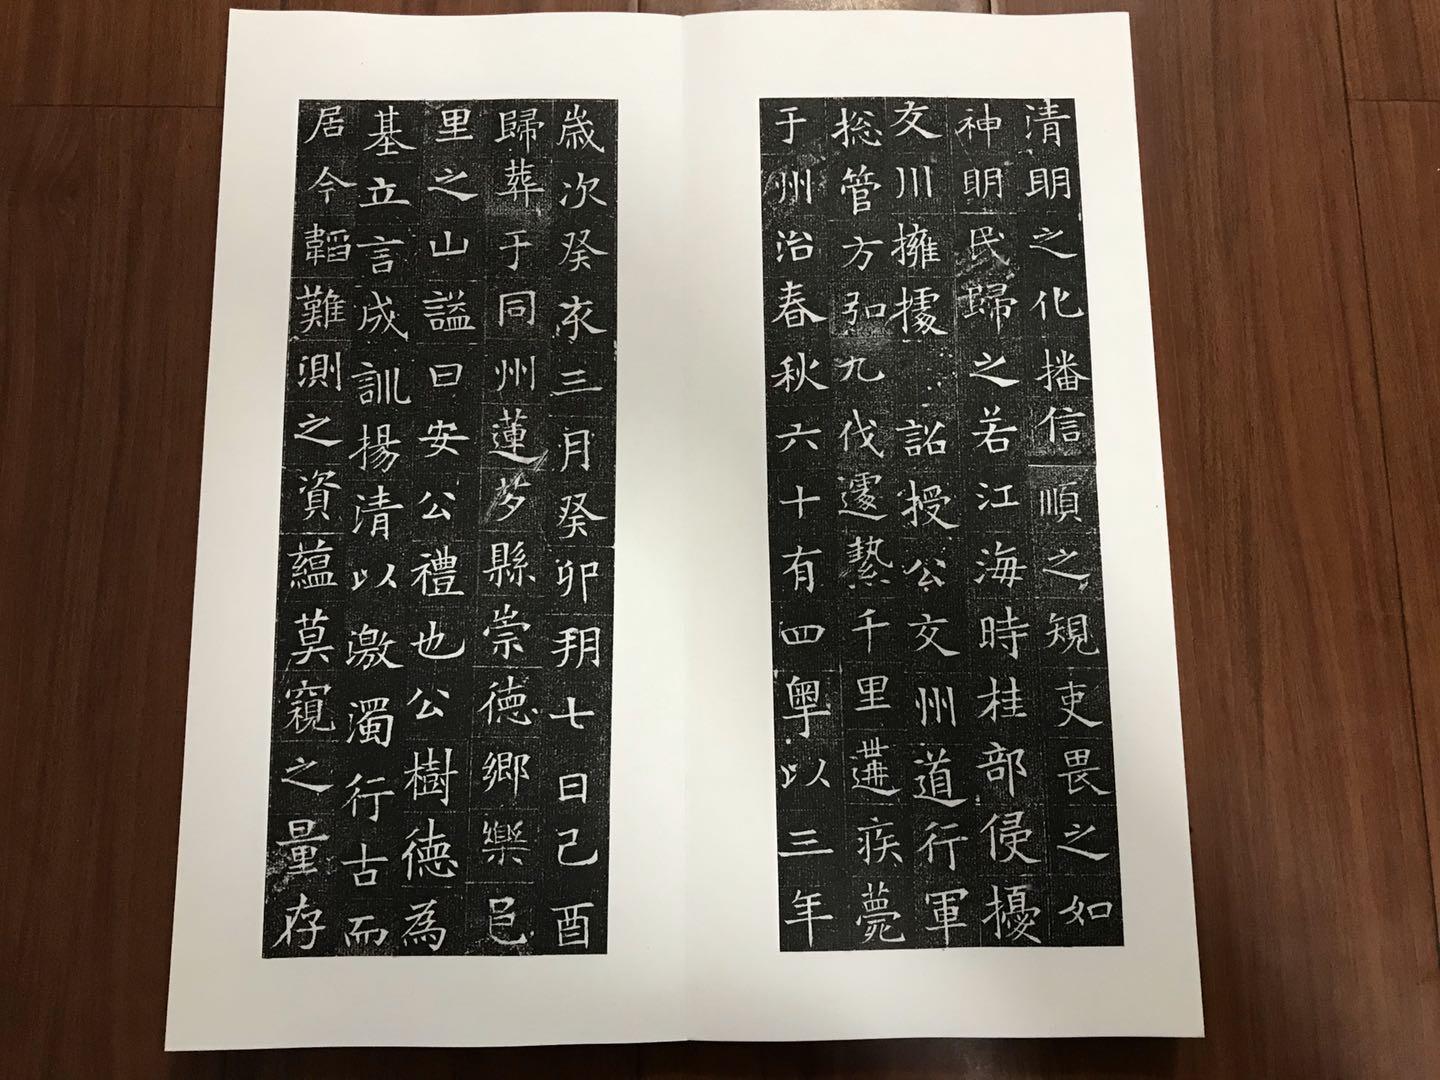 清明之化播信順之規吏畏之如
神明民歸之若江海時桂部侵擾
交川擁據詔授公交州道行軍
捴管方弘九伐遽縶千里遘疾薨
于州治春秋六十有四粵以三年
歲次癸亥三月癸卯朔七日己酉
歸葬于同州蓮芍縣崇德鄉樂邑
里之山謚曰安公禮也公樹德為
基立言成訓揚清以激濁行古而
居今韜難測之資蘊莫窺之量存